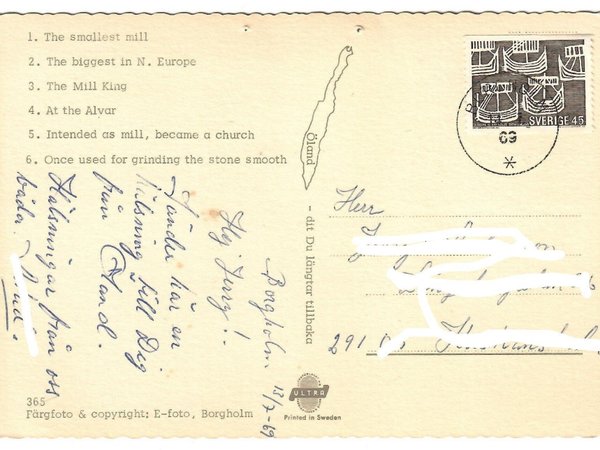 1. The smallest mill
2. The biggest in N. Europe
3. The Mill King
4. At the Alvar
5. Intended as mill, became a church
6. Once used for grinding the stone smooth
Öland - dit Du längtar tillbaka
SVERIGE 45
69
Borgholm 13/7-69
Hej Jerry!
Sänder här en
hälsning till Dig
från Öland.
Hälsningar från oss
båda.
Herr
291
365
Färgfoto & copyright: E-foto, Borgholm
ULTRA
Printed in Sweden